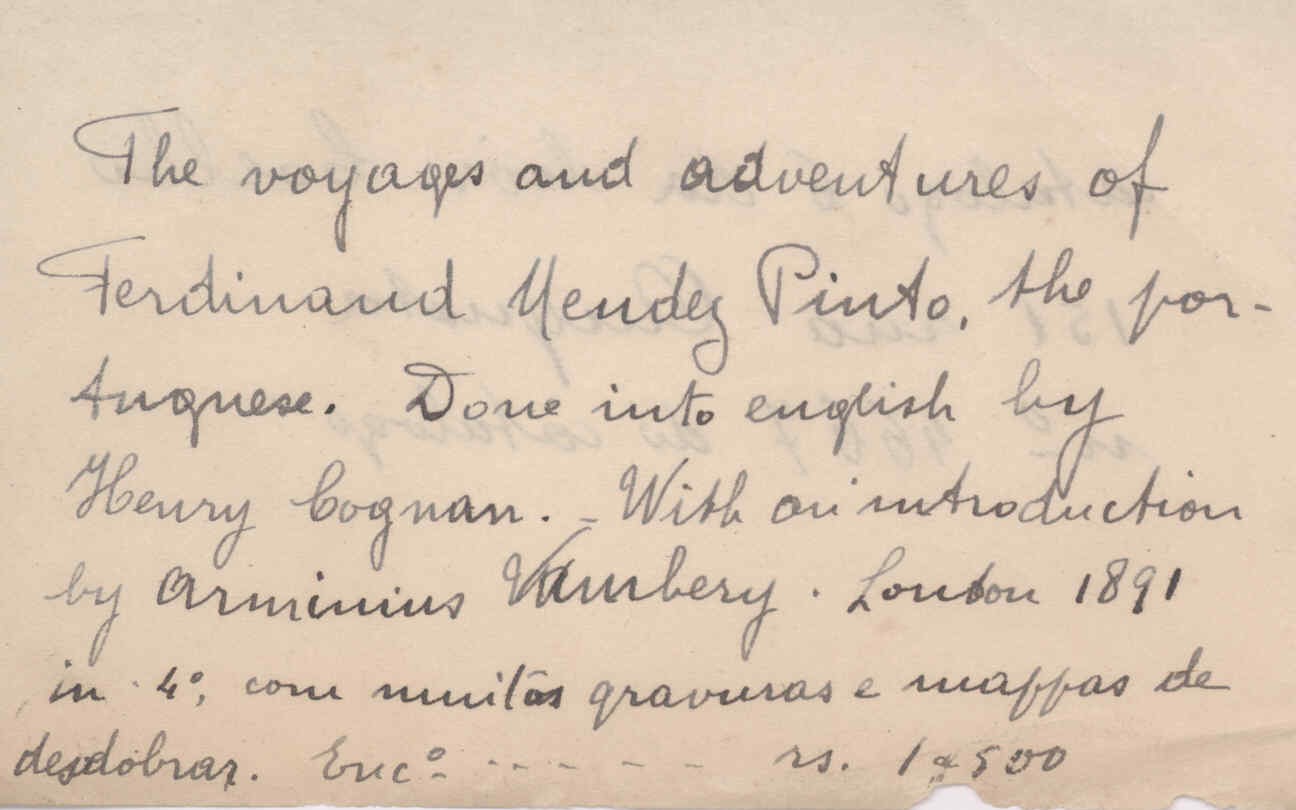 The voyages and adventures of
Ferdinand Mendez Pinto, the por-
tuguese. Done into english by
Henry Cognan. - With an introduction
by Arminius Vambery. London 1891
in 4º, com muitas gravuras e mappas de
desdobrar. Encº - - - - - - rs. 1$500